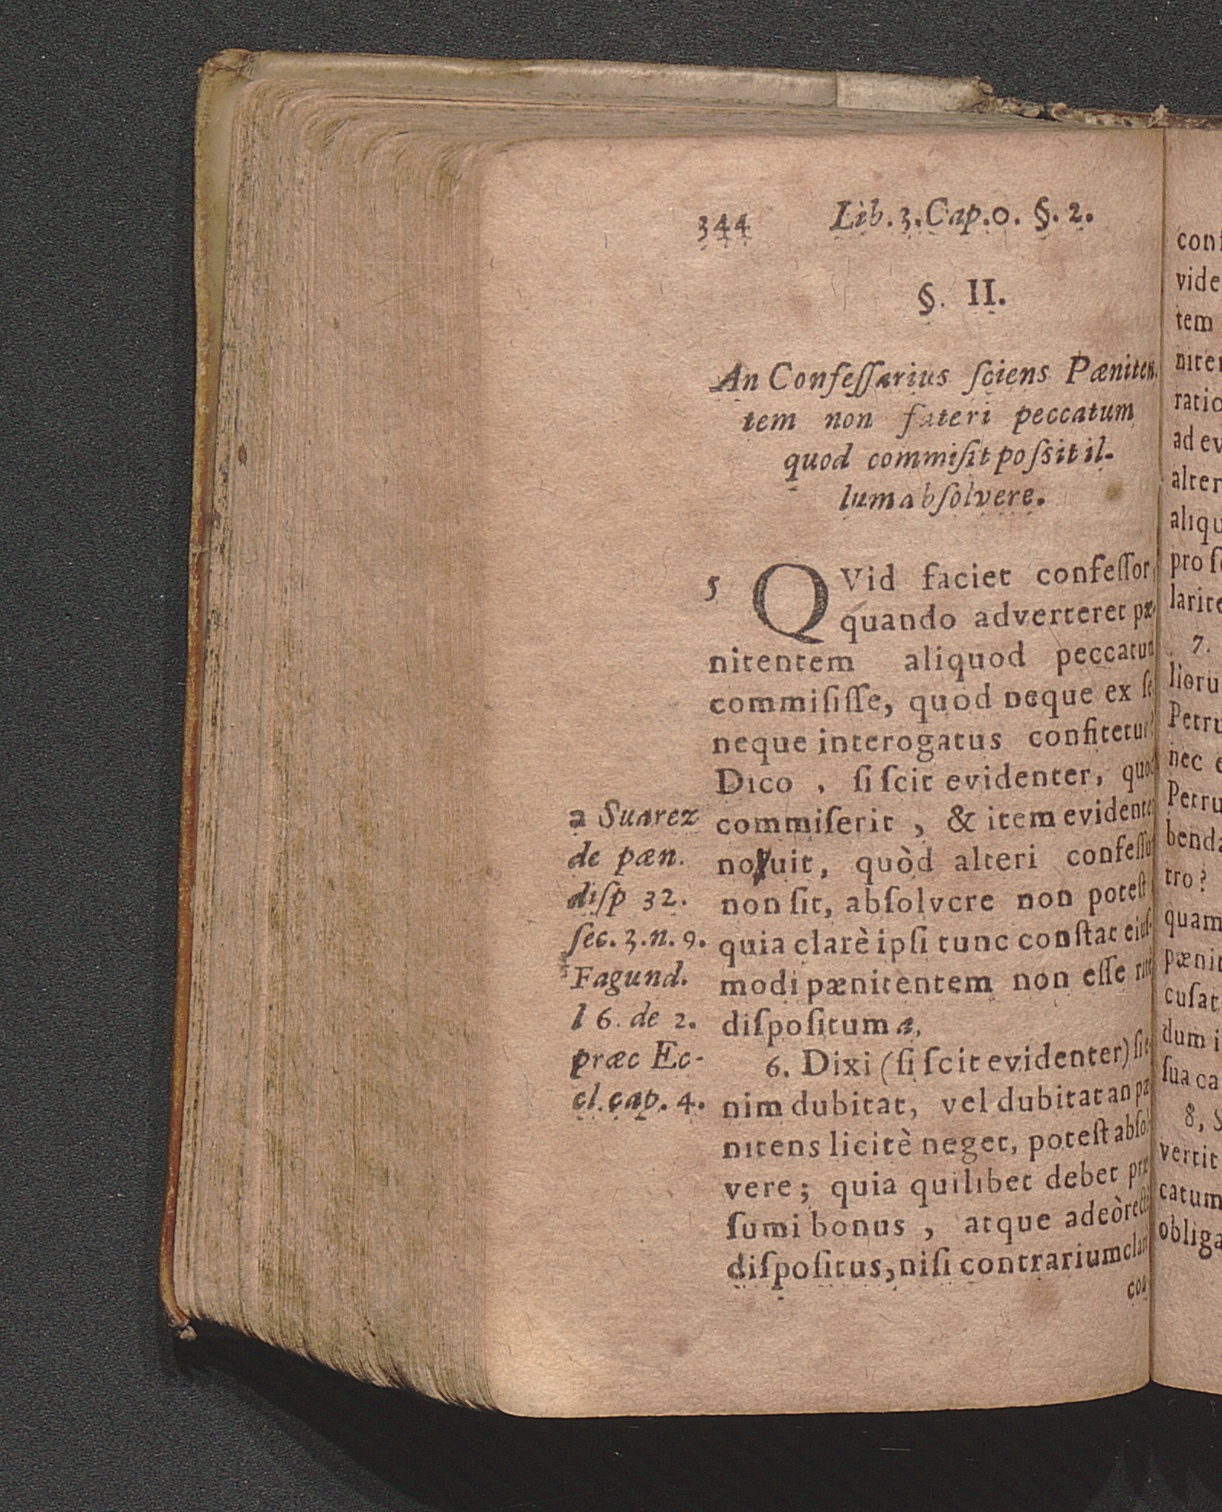 344 Lib. 3. Cap. 0. §. 2.
§. II.
An Confeſſarius ſciens Pæniten
tem non fateri peccatum
quod commiſit poſsit il-
lum abſolvere.
5 QVid faciet confeſſor,
quando adverteret pæ-
nitentem aliquod peccatum
commiſiſſe, quod neque ex ſe
neque interogatus confitetur?
Dico, ſi ſcit evidenter, quod
commiſerit, & item evidenter
novuit, quòd alteri confeſſus
non ſit, abſolvere non poteſt
quia clarè ipſi tunc conſtat eiuſ-
modi pænitentem non eſſe ritè
diſpoſitum a,
6. Dixi (ſi ſcit evidenter) ſi e-
nim dubitat, vel dubitat an pæ
nitens licitè neget, poteſt abſol
vere; quia quilibet debet præ
ſumi bonus, atque adeò rectè
diſpoſitus, niſi contrarium clarè
a Suarez
de pæn.
diſp 32.
ſec. 3. n. 9.
Fagund.
l 6. de 2.
præc Ec-
cl. cap. 4.
vide
tem
ratio
ad ev
alter
aliqu
pro ſe
larite
7.
Petru
nec
Petru
benda
tro?
quam
pænit
cuſat
dum i
ſua ca
8, S
vertit
catum
obliga